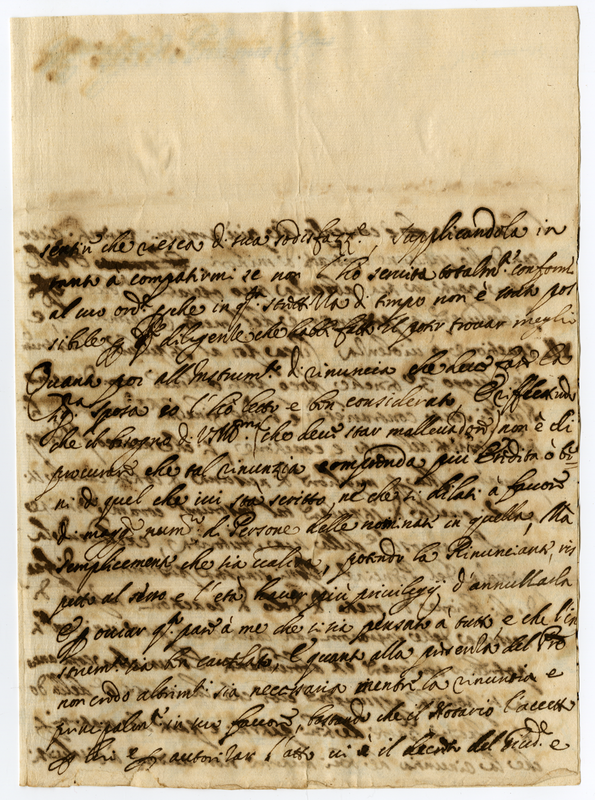 sentir che riesca di sua sodisfaz.e, supplicandola in
tanto à compatirmi se non l'ho servita totalm.te conform
al suo ord.e che in q.ta strettezza di tempo non è stato pos
sibile diligenze che habbi fatto il poter trovar meglio
Quanto poi all'Instrum.to di rinuncia che deve fare la
sposa io l'ho letto e ben considerato E riflettendo
che il bisogno di V.S. Ill.ma (che deve star mallevadore) non è di
procurare che tal rinunzia comprenda più Eredità ò be
ni di quel che ivi sta scritto, ne che si dilati à favore
di magg.r num.o di Persone delle nominate in quella, Mà
semplicemente che sia valida, potendo la Rinunciante, ris
petto al sesso e l'età haver più privilegij d'annullarla
E ovviar q.to pare à me che si sia pensato à tutto e che l'in
strum.to sia ben cautelato, E quanto alla presenza del
non credo altrim.te sia necessaria mentre la rinunzia è
principalm.te in suo favore, bastando che il Notario l'accetti
p lui e p autorizar l'atto vi è il decreto del Giud.e e